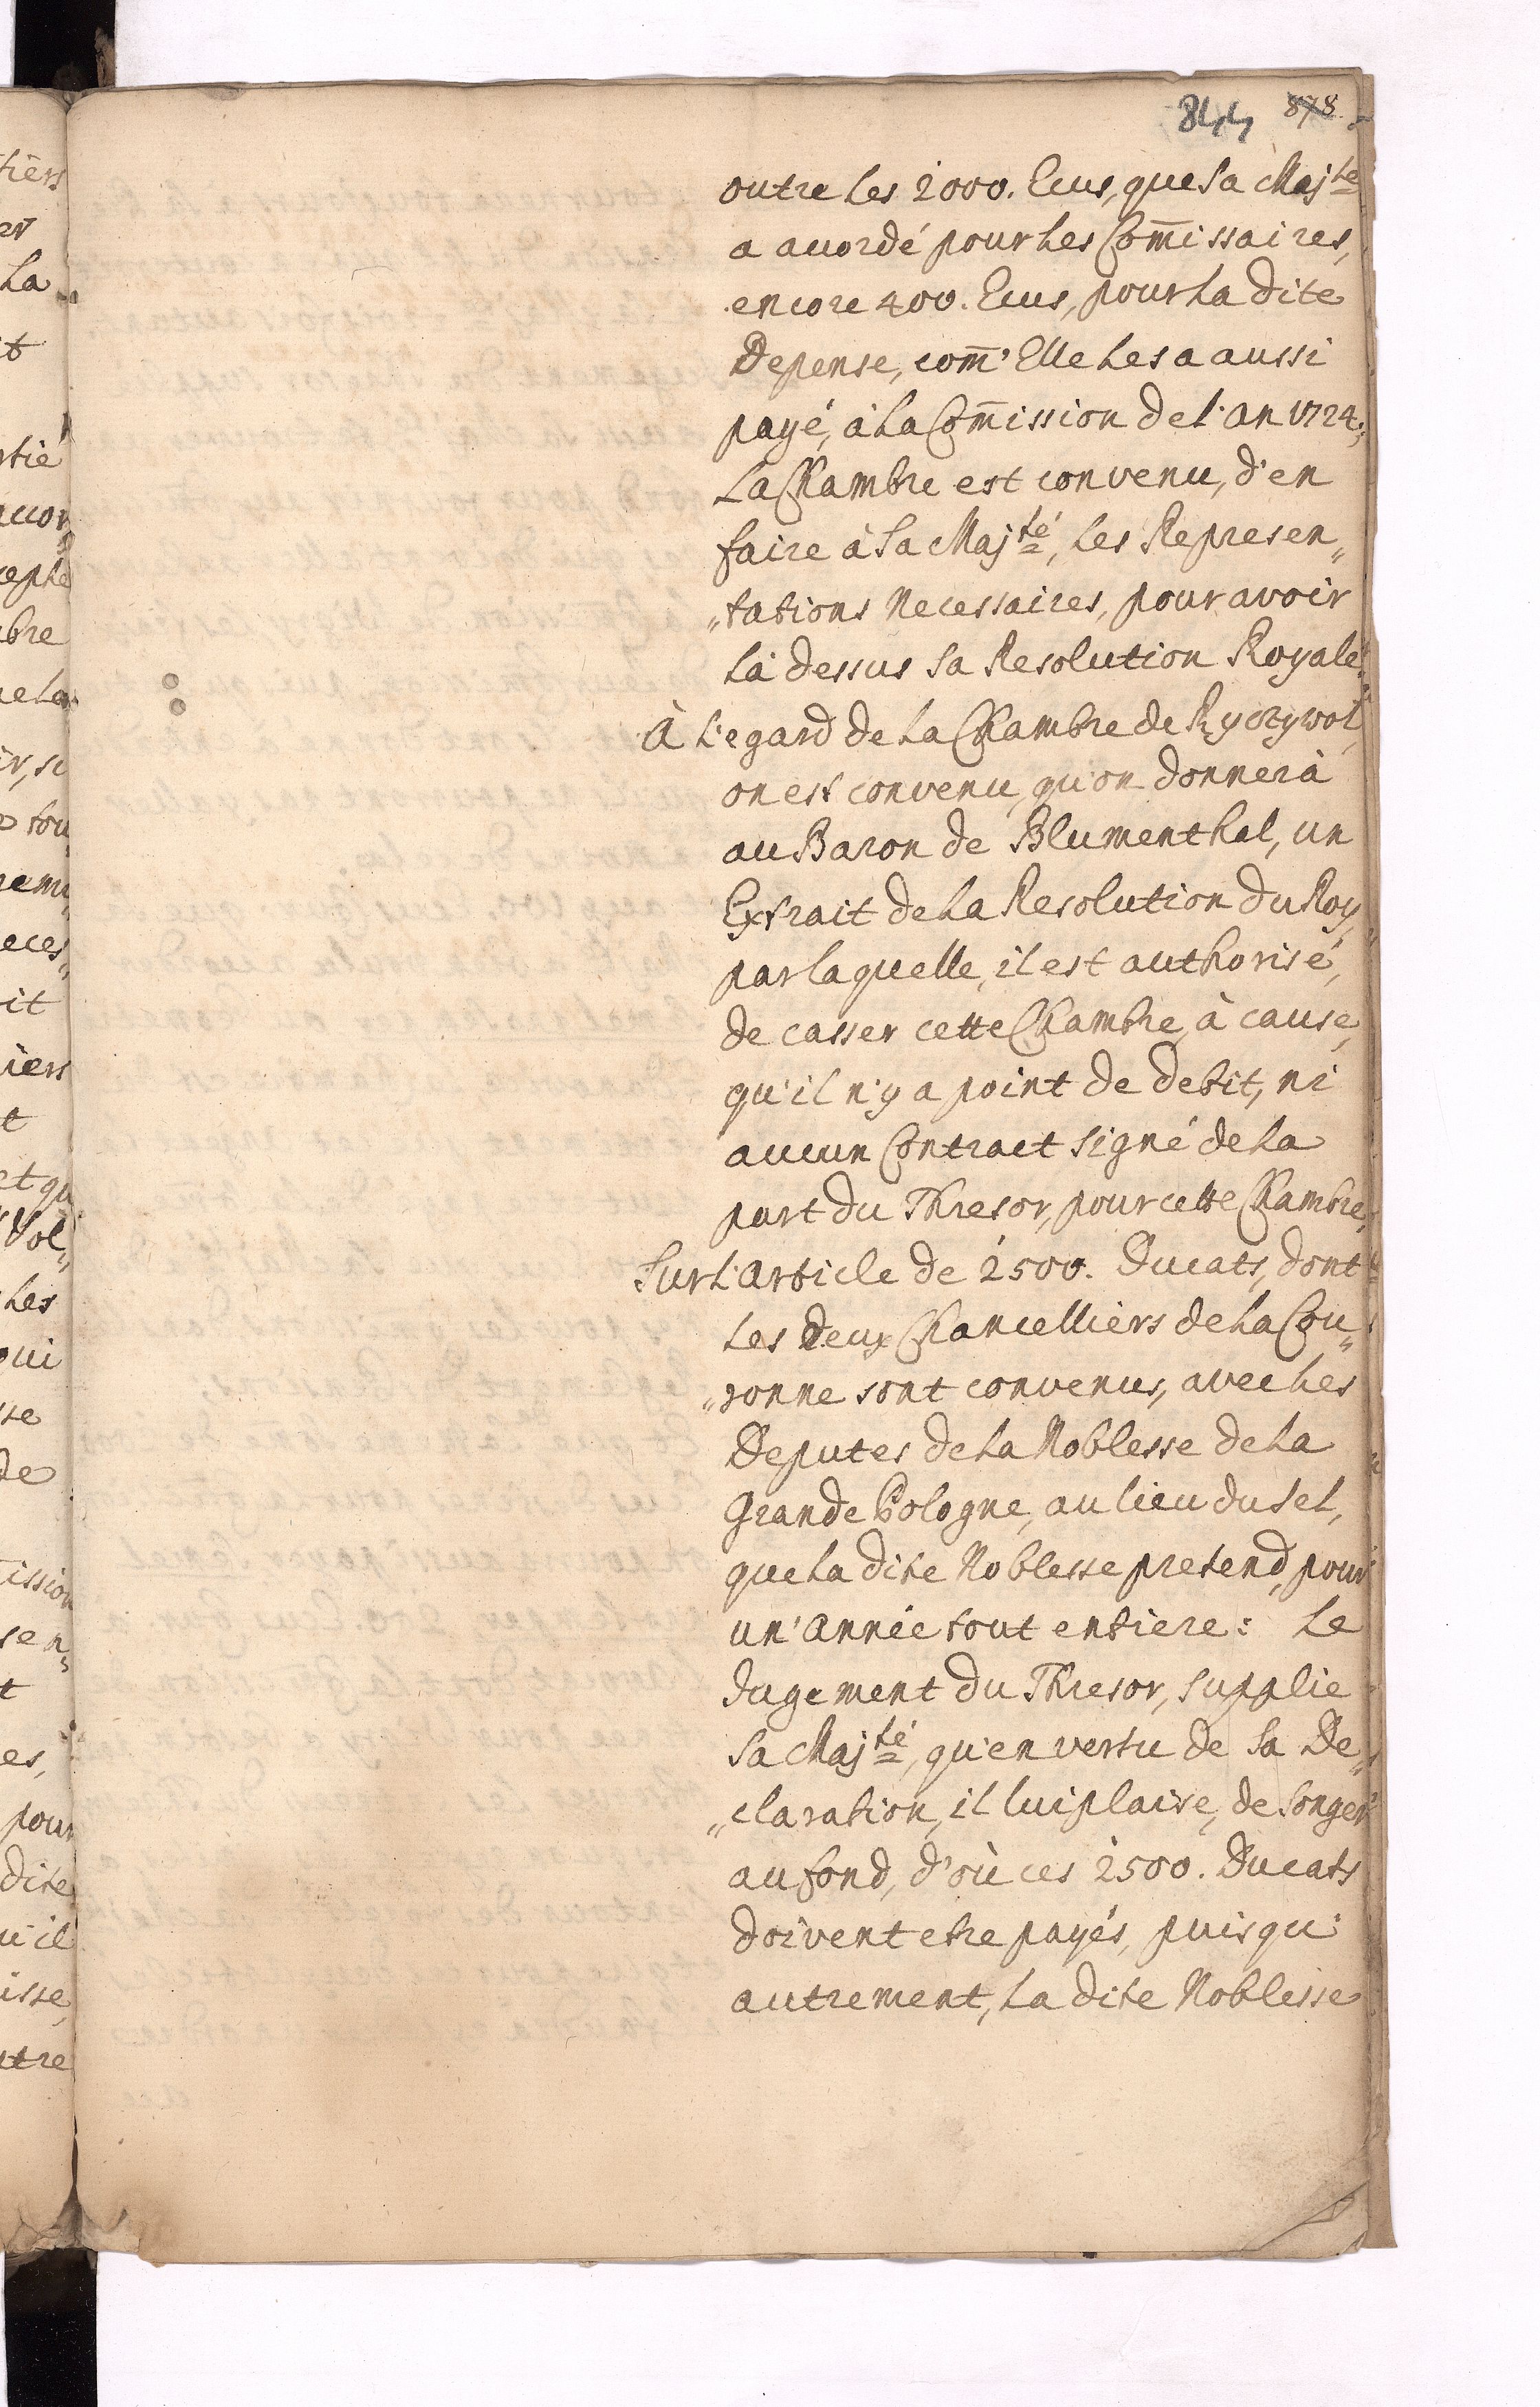 844 878.
outre les 2000. Ecus, que Sa Majté
a accordé pour les Com̄issaires,
encore 400. Ecus, pour la dite
Depense, com̄' Elle les a aussi
payé, à la Com̄ission de l'an 1724.,
La Chambre est convenu, d'en
faire à Sa Majté, les Represen„
„tations Necessaires, pour avoir
là dessus Sa Resolution Royale.
À l'egard de la Chambre de Ryczywol,
on est convenu, qu'on donnerà
au Baron de Blumenthal, un
Extrait de la Resolution du Roy,
par laquelle, il est authorisé,
de casser cette Chambre, à cause,
qu'il n'y a point de debit, ni
aucun Contract signé de la
part du Thresor, pour cette Chambre,
Sur l'article de 2500. Ducats, dont
les deux Chancelliers de la Cou„
„ronne sont convenus, avec les
Deputes de la Noblesse de la
Grande Pologne, au lieu du sel,
que la dite Noblesse pretend, pour
un' année tout entiere: Le
Jugement du Thresor, supplie
Sa Majté, qu'en vertu de Sa De„
„claration, il lui plaise, de songer
au fond, d'où ces 2500. Ducats
doivent etre payés, puisqu'
autrement, la dite Noblesse